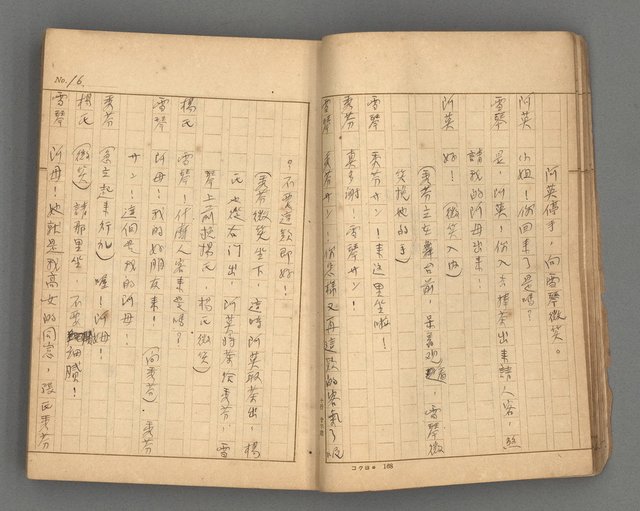 阿英停手，向雪琴微笑。
阿英　小姐！你回來了是嗎？
雪琴　是，阿英！你入去捧茶出來請人客，
請我的阿母出來！
阿英　好！（微笑入內）
（秀芬立在舞台前，雪琴微
笑挽他的手）
雪琴　秀芬サン！來這里坐啦！
秀芬　真多謝！雪琴サン！
雪琴　秀芬サン！你怎樣又再這款的客氣了呢
コクヨ 168
No. 16.
。不要這款即好！
（秀芬微笑坐下，這時阿英取茶出，楊
氏也從右門出，阿英將茶給秀芬，雪
琴上前挽楊氏，楊氏微笑）
楊氏　雪琴！什麼人客來是嗎？
雪琴　阿母！我的好朋友來！（向秀芬）秀芬
サン！這個是我的阿母！
秀芬　（急立起來行禮）喔！阿母！
楊氏　（微笑）請那里坐，不要細膩！
雪琴　阿母！她就是我高女的同窓，張氏秀芬